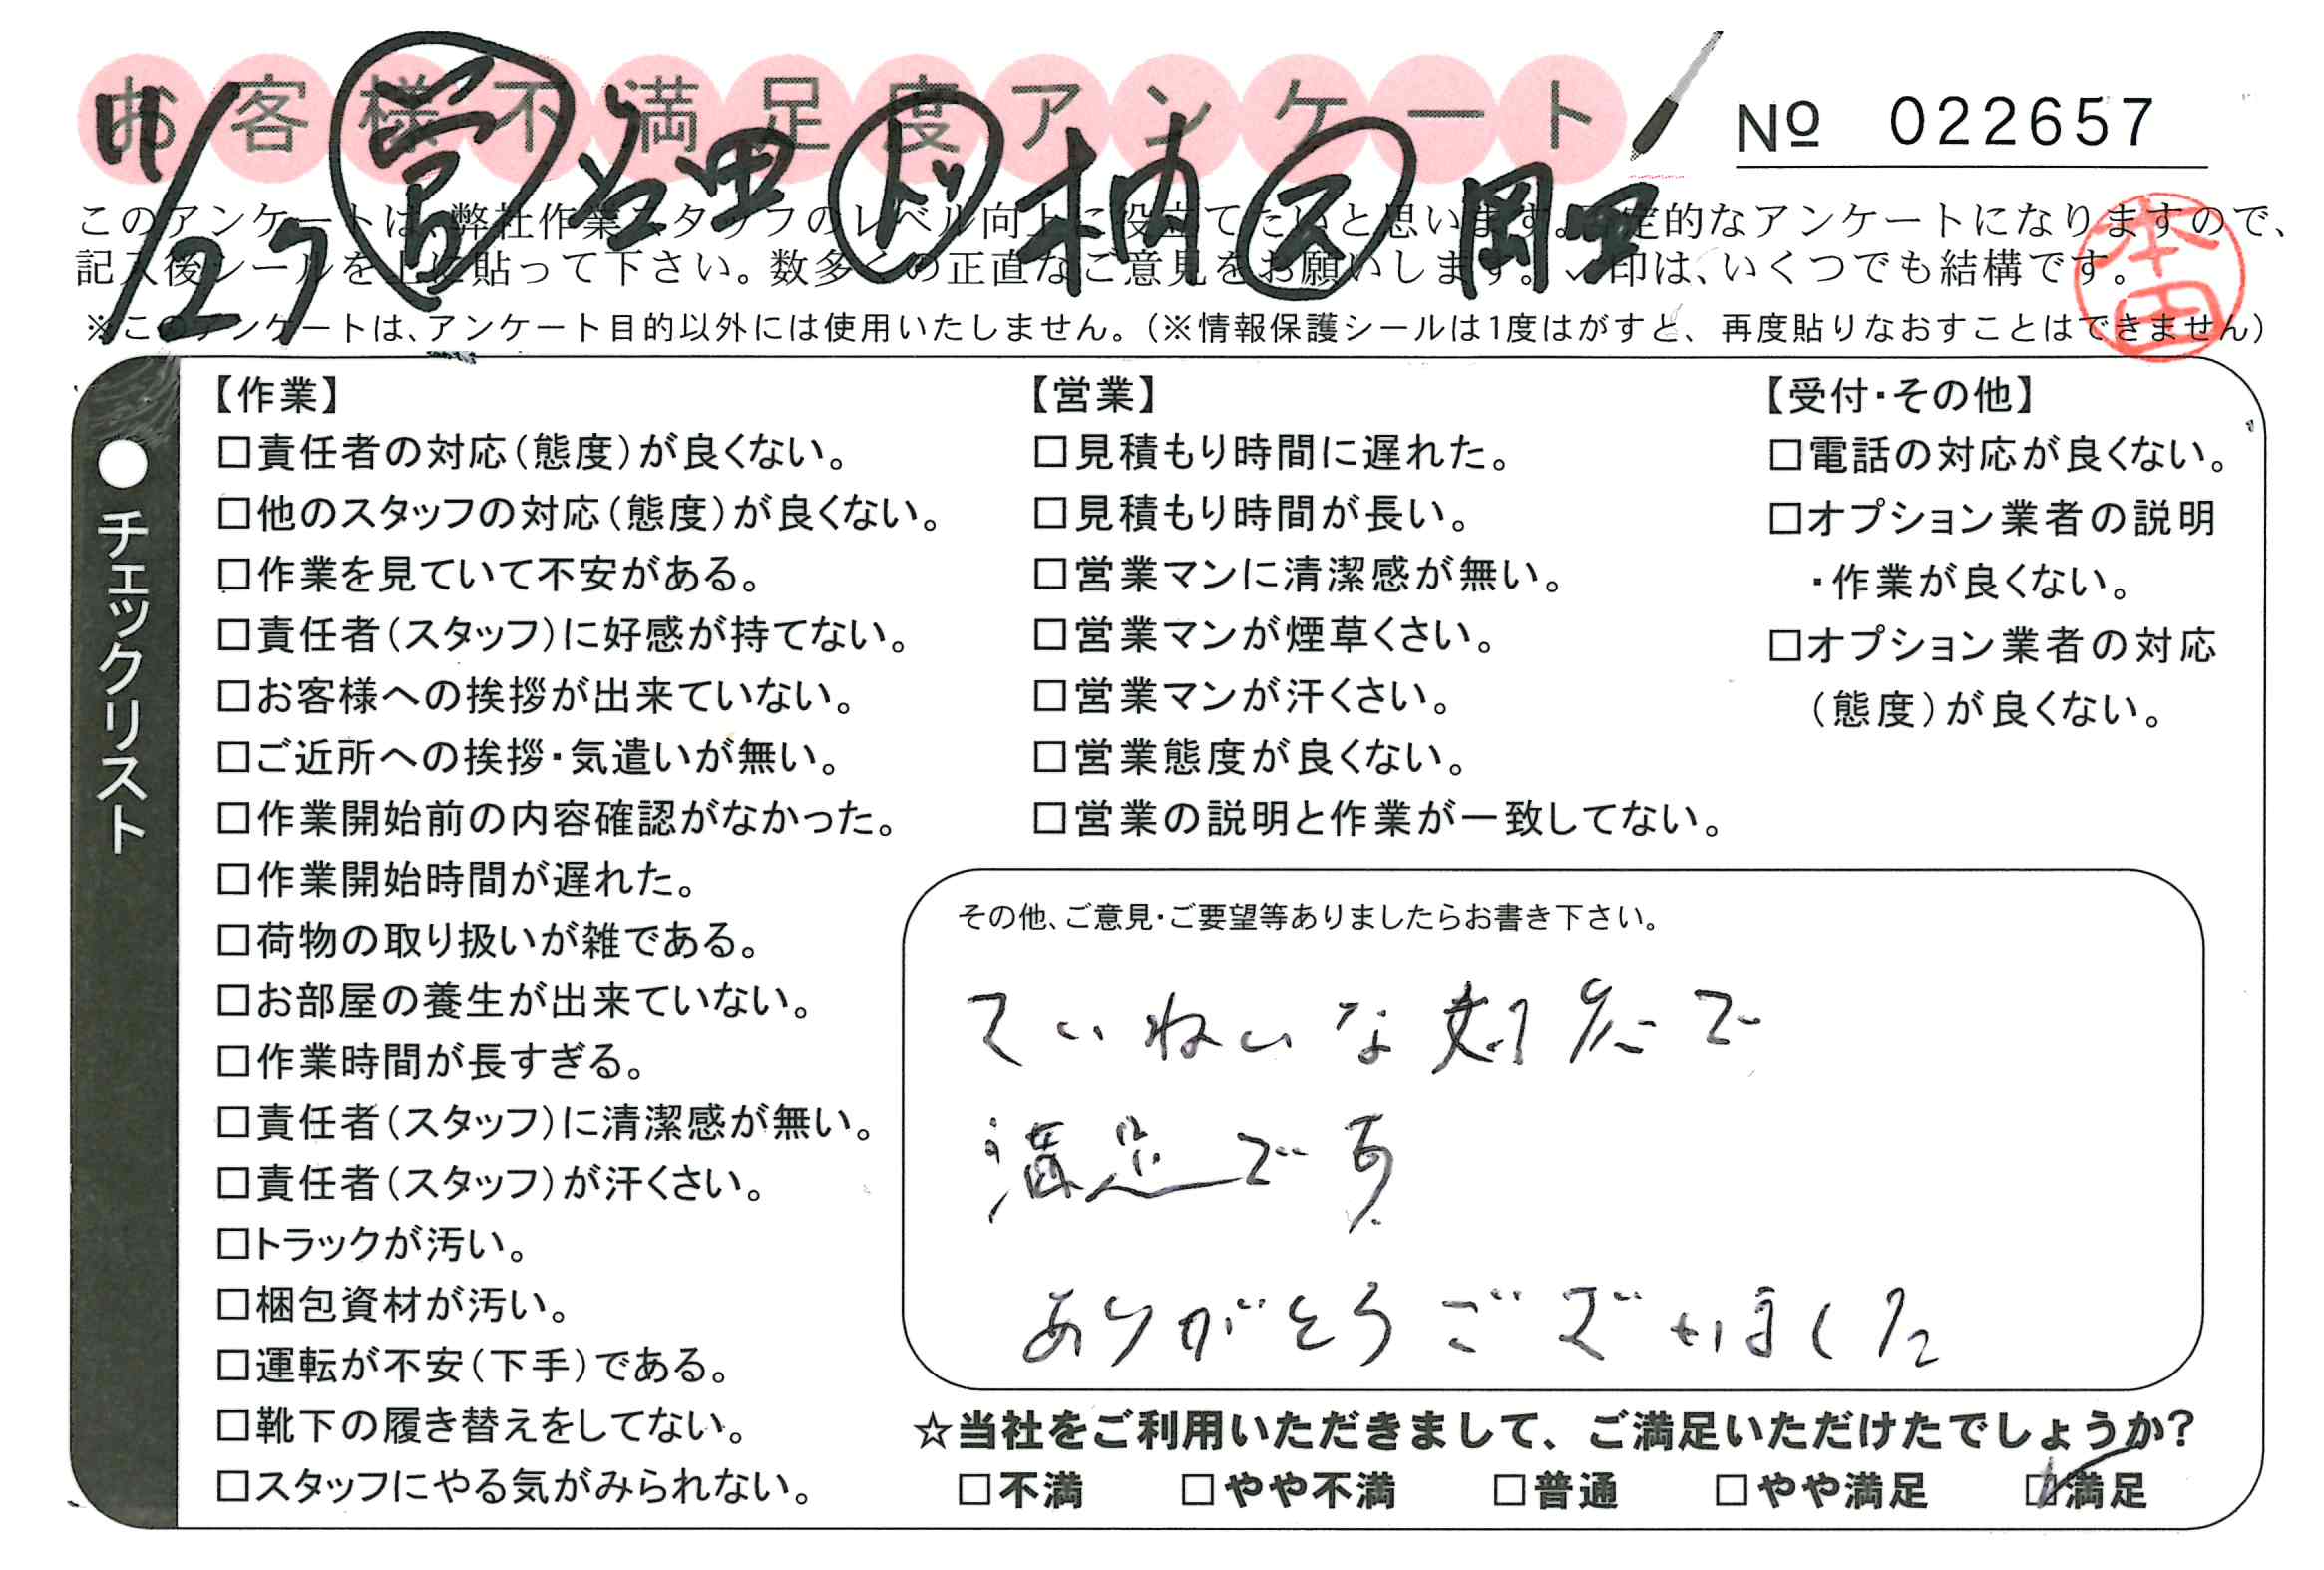 お客様不満足度アンケート
№ 022657
11/27 営 岩田 ド 柿 ス 岡田
このアンケートは、弊社作業スタッフのレベル向上に役立てたいと思います。否定的なアンケートになりますので、
記入後シールを上に貼って下さい。数多くの正直なご意見をお願いします。✓印は、いくつでも結構です。
本田
※このアンケートは、アンケート目的以外には使用いたしません。（※情報保護シールは1度はがすと、再度貼りなおすことはできません）
●チェックリスト
【作業】
□責任者の対応（態度）が良くない。
□他のスタッフの対応（態度）が良くない。
□作業を見ていて不安がある。
□責任者（スタッフ）に好感が持てない。
□お客様への挨拶が出来ていない。
□ご近所への挨拶・気遣いが無い。
□作業開始前の内容確認がなかった。
□作業開始時間が遅れた。
□荷物の取り扱いが雑である。
□お部屋の養生が出来ていない。
□作業時間が長すぎる。
□責任者（スタッフ）に清潔感が無い。
□責任者（スタッフ）が汗くさい。
□トラックが汚い。
□梱包資材が汚い。
□運転が不安（下手）である。
□靴下の履き替えをしてない。
□スタッフにやる気がみられない。
【営業】
□見積もり時間に遅れた。
□見積もり時間が長い。
□営業マンに清潔感が無い。
□営業マンが煙草くさい。
□営業マンが汗くさい。
□営業態度が良くない。
□営業の説明と作業が一致してない。
【受付・その他】
□電話の対応が良くない。
□オプション業者の説明
・作業が良くない。
□オプション業者の対応
（態度）が良くない。
その他、ご意見・ご要望等ありましたらお書き下さい。
ていねいな対応で
満足です
ありがとうございました
☆当社をご利用いただきまして、ご満足いただけたでしょうか?
□不満 □やや不満 □普通 □やや満足 ☑満足